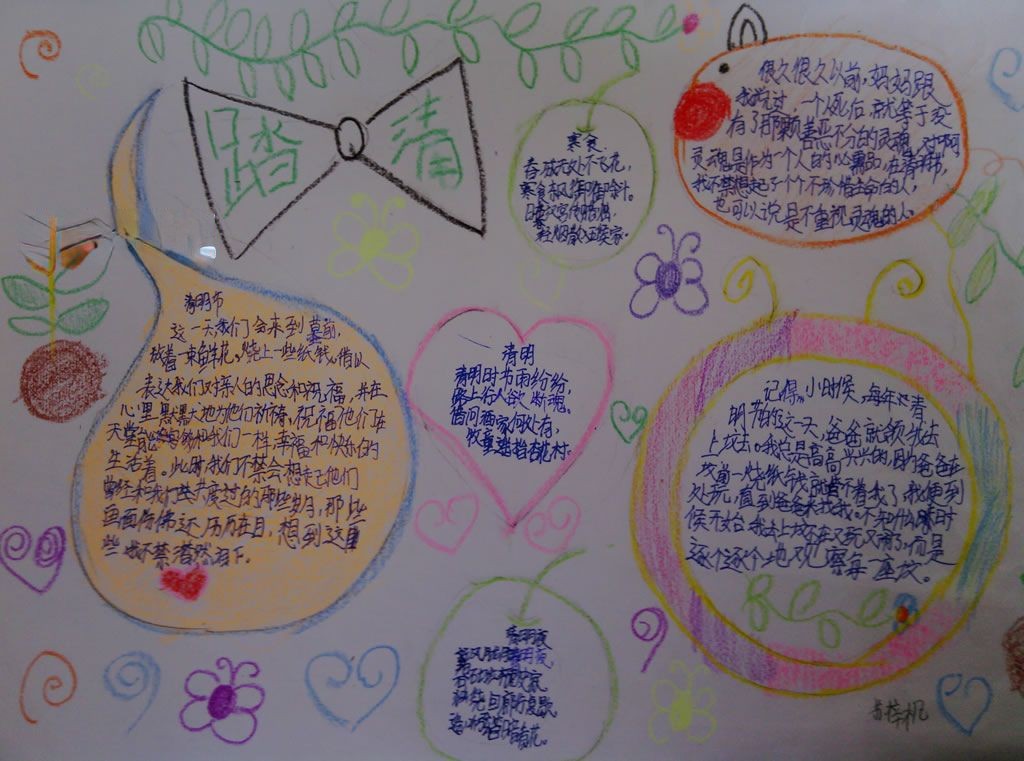 踏清
寒食
春城无处不飞花,
寒食东风御柳斜。
日暮汉宫传蜡烛,
轻烟散入五侯家。
很久很久以前,妈妈跟
我说过,一个人死后,就等于变
有了那颗善恶不分的灵魂,对啊
灵魂是作为一个人的必需品,在清明节,
我不禁想起了个个不珍惜生命的人,
也可以说是不重视灵魂的人。
清明节
这一天,我们会来到墓前,
放着一束鲜花。烧上一些纸钱,借以
表达我们对亲人的思念和祝福,并在
心里默默地为他们祈祷,祝福他们在
天堂能够和我们一样,幸福和快乐的
生活着。此时我们不禁会想起他们
曾经和我们共度过的那些岁月,那些
画面仿佛还历历在目,想到这
些我不禁潸然泪下。
清明
清明时节雨纷纷,
路上行人欲断魂。
借问酒家何处有,
牧童遥指杏花村。
记得小时候,每年清
明节的这一天,爸爸就领我去
上坟去。我总是高高兴兴的,因为爸爸在
坟前一烧纸钱,就管不着我了,我便到
处玩,直到爸爸来找我。不知什么时
候开始我去上坟不在又玩又闹了,而是
逐个逐个地观察每一座坟。
清明夜